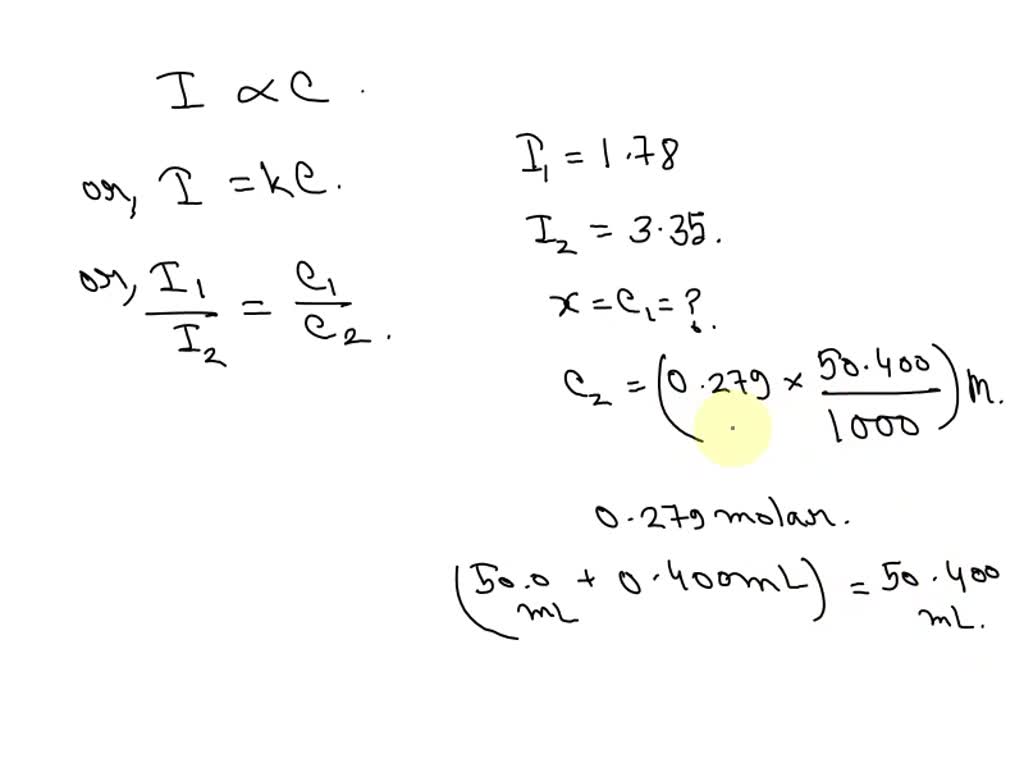 I ∝ C .
or, I = kC.
or, I₁/I₂ = C₁/C₂ .
I₁ = 1.78
I₂ = 3.35.
x = C₁ = ?.
C₂ = (0.279 × 50.400/1000) M.
0.279 molar.
(50.0 mL + 0.400mL) = 50.400 mL.